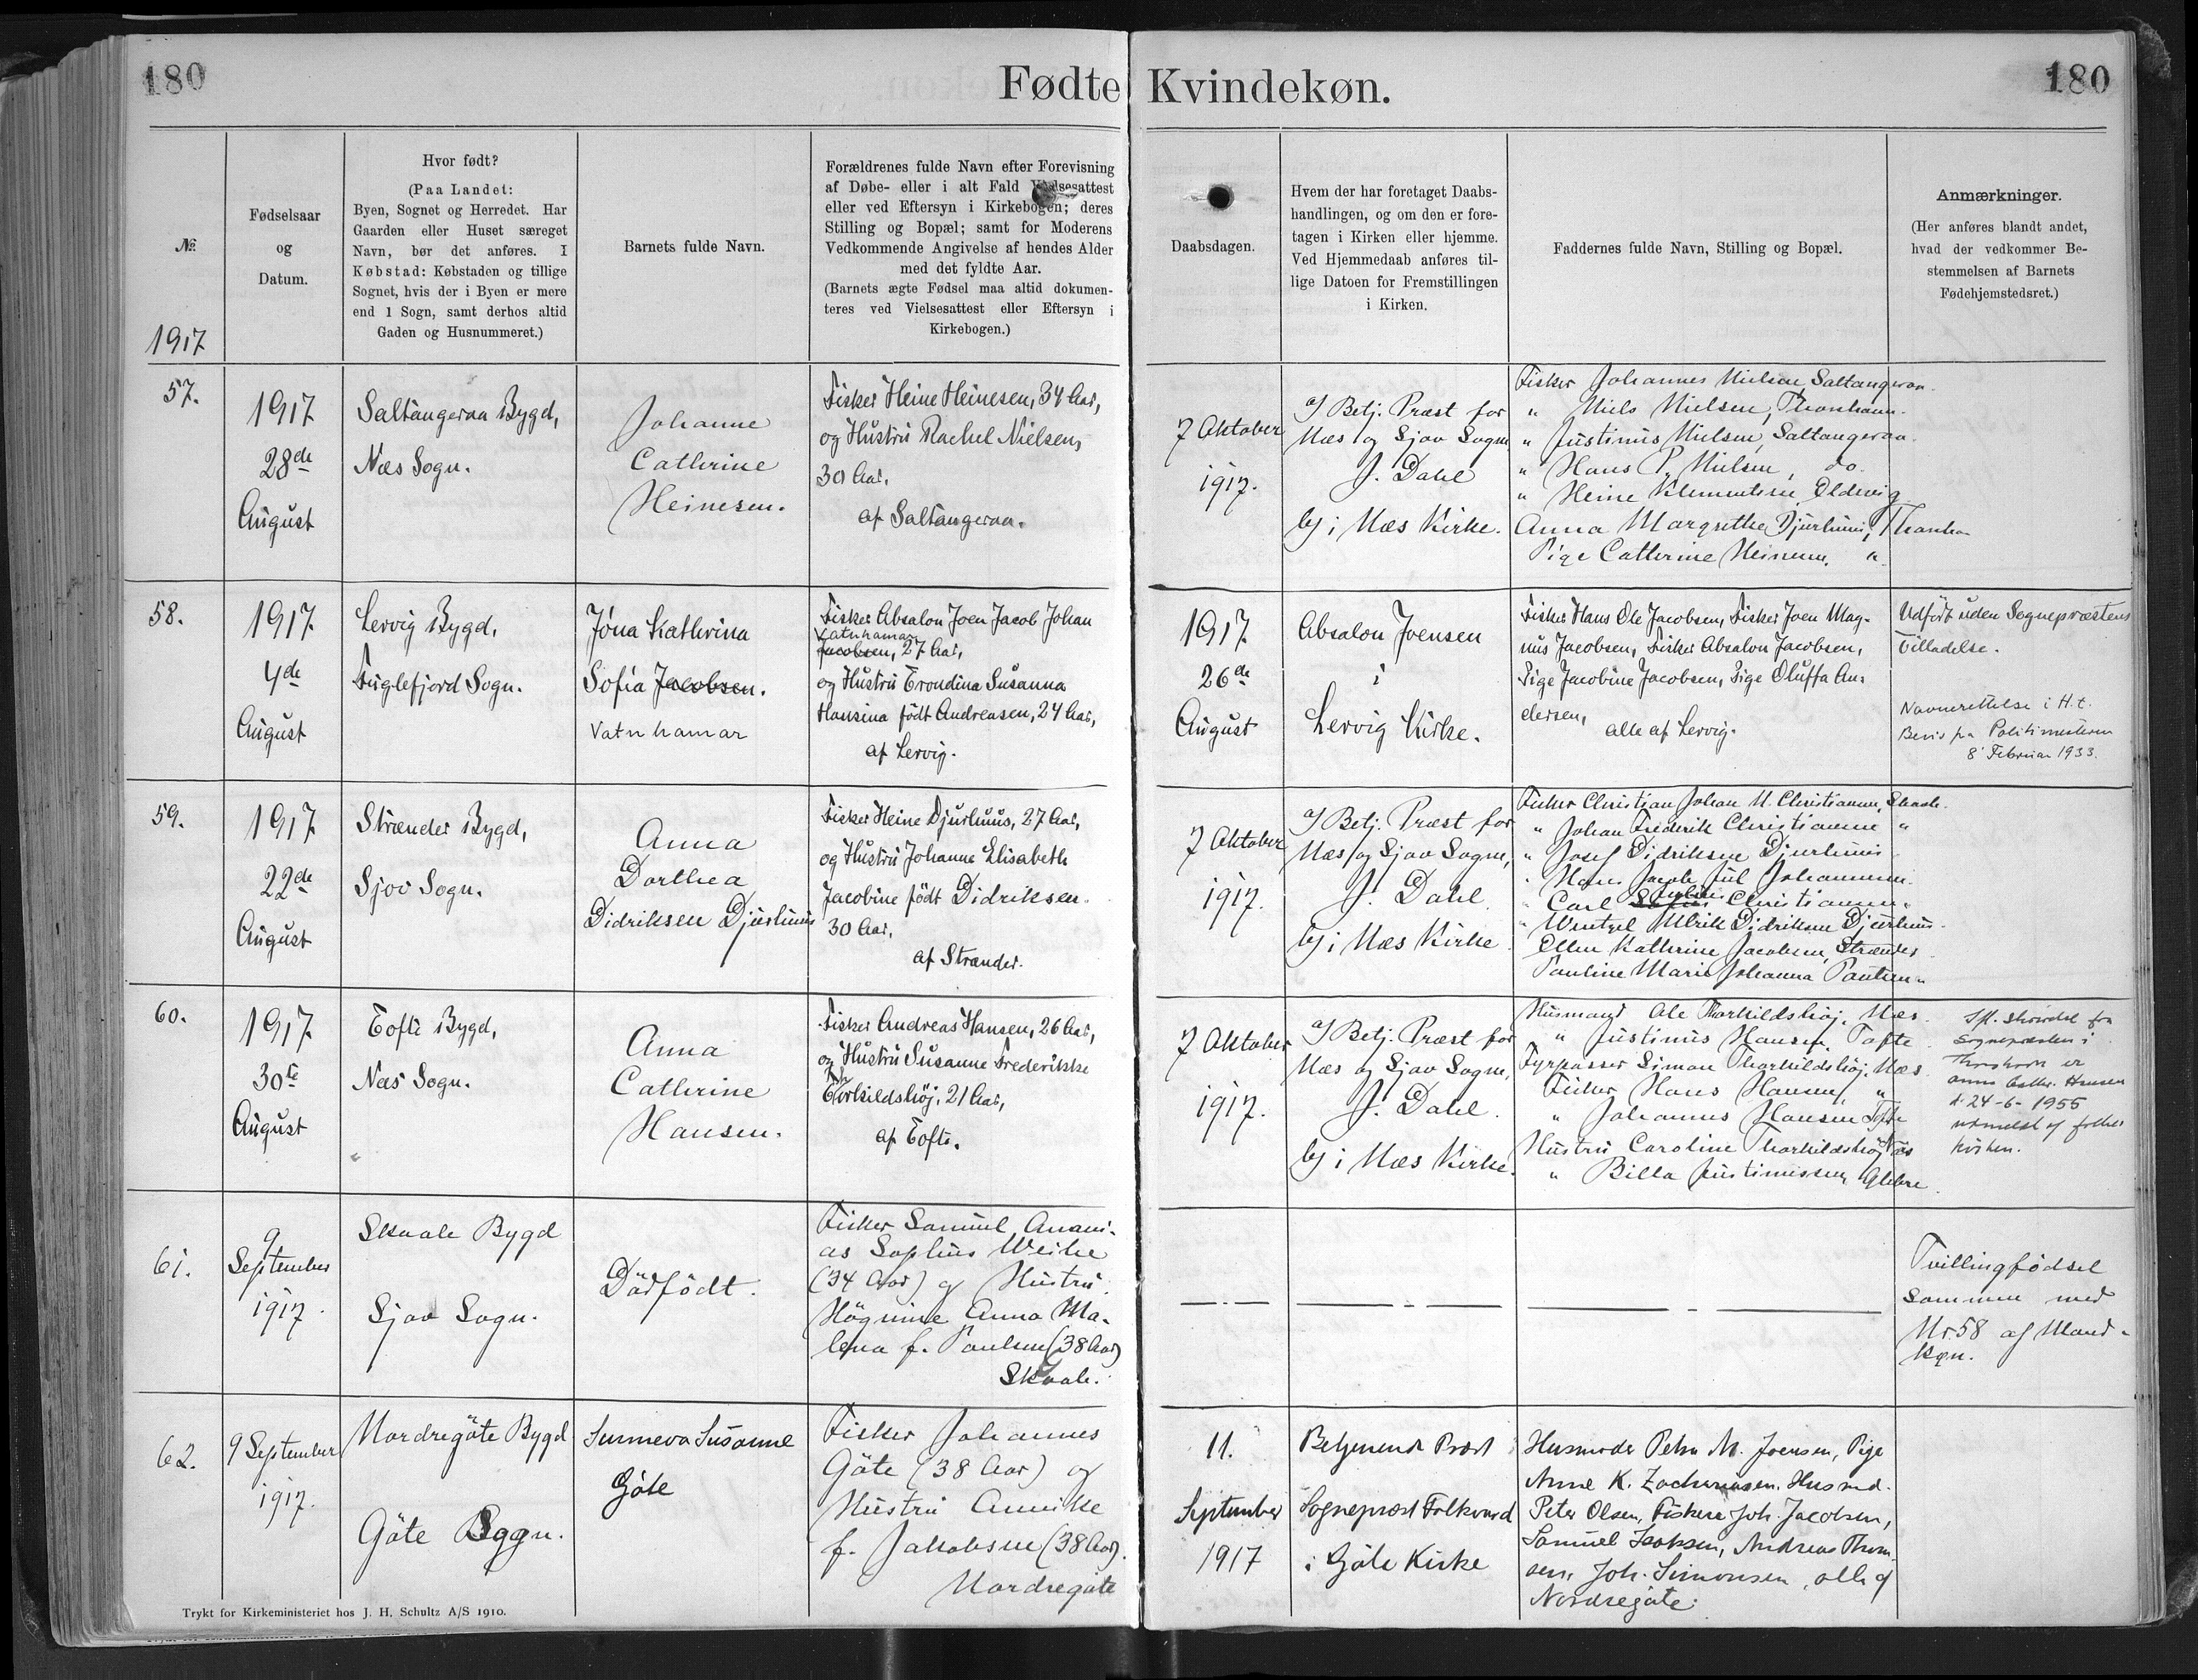 180
Fødte Kvindekøn.
180
№.
1917
Fødselsaar
og
Datum.
Hvor født?
(Paa Landet:
Byen, Sognet og Herredet. Har
Gaarden eller Huset særeget
Navn, bør det anføres. I
Købstad: Købstaden og tillige
Sognet, hvis der i Byen er mere
end 1 Sogn, samt derhos altid
Gaden og Husnummeret.)
Barnets fulde Navn.
Forældrenes fulde Navn efter Forevisning
af Døbe- eller i alt Fald Vielsesattest
eller ved Eftersyn i Kirkebogen; deres
Stilling og Bopæl; samt for Moderens
Vedkommende Angivelse af hendes Alder
med det fyldte Aar.
(Barnets ægte Fødsel maa altid dokumen-
teres ved Vielsesattest eller Eftersyn i
Kirkebogen.)
Daabsdagen.
Hvem der har foretaget Daabs-
handlingen, og om den er fore-
tagen i Kirken eller hjemme.
Ved Hjemmedaab anføres til-
lige Datoen for Fremstillingen
i Kirken.
Faddernes fulde Navn, Stilling og Bopæl.
Anmærkninger.
(Her anføres blandt andet,
hvad der vedkommer Be-
stemmelsen af Barnets
Fødehjemstedsret.)
57.
1917
28de
August
Saltangeraa Bygd,
Næs Sogn.
Johanne
Cathrine
Heinesen.
Fisker Heine Heinesen, 34 Aar,
og Hustru Rachel Nielsen,
30 Aar,
af Saltangeraa.
7 Oktober
1917.
a) Betj. Præst for
Næs og Sjov Sogne
J. Dahl
b) i Næs Kirke.
Fisker Johannes Nielsen, Saltangeraa.
" Niels Nielsen, Thorshavn.
" Justinus Nielsen, Saltangeraa.
" Hans P. Nielsen, do.
" Heine Klementsen, Eldevig
Anna Margrethe Djurhuus, Thorsha
Pige Cathrine Heinesen. "
58.
1917.
4de
August
Lervig Bygd,
Fuglefjord Sogn.
Jóna Kathrina
Sofía Jacobsen.
Vatnhamar
Fisker Absalon Joen Jacob Johan
Vatnhamar
Jacobsen, 27 Aar,
og Hustru Trondina Susanna
Hansina født Andreasen, 24 Aar,
af Lervig.
1917.
26de
August
Absalon Joensen
i
Lervig Kirke.
Fisker Hans Ole Jacobsen, Fisker Joen Mag-
nus Jacobsen, Fisker Absalon Jacobsen,
Pige Jacobine Jacobsen, Pige Oluffa An-
dersen,
alle af Lervig.
Udført uden Sognepræstens
Tilladelse.
Navnerettelse i H.t.
Bevis fra Politimesteren
8' Februar 1933.
59.
1917
22de
August
Strænder Bygd,
Sjov Sogn.
Anna
Dorthea
Didriksen Djurhuus
Fisker Heine Djurhuus, 27 Aar,
og Hustru Johanne Elisabeth
Jacobine født Didriksen.
30 Aar,
af Strænder.
7 Oktober
1917.
a) Betj. Præst for
Næs og Sjov Sogne,
J. Dahl.
b) i Næs Kirke.
Fisker Christian Johan M. Christiansen,
" Johan Frederik Christiansen "
" Josef Didriksen Djurhuus
" Hans Jacob Jul Johannesen.
" Carl Christiansen.
" Wentzel Ulrik Didriksen Djurhuus.
Ellen Kathrine Jacobsen, Strænder
Pauline Marie Johanna Poulsen "
60.
1917.
30te
August
Tofte Bygd,
Næs Sogn.
Anna
Cathrine
Hansen.
Fisker Andreas Hansen, 26 Aar,
og Hustru Susanne Frederikke
Thorkildshöj, 21 Aar,
af Tofte.
7 Oktober
1917.
a) Betj. Præst for
Næs og Sjov Sogne,
J. Dahl.
b) i Næs Kirke.
Husmand Ole Thorkildshöj, Næs.
" Justinus Hansen, Tofte
Fyrpasser Simon Thorkildshöj, Næs
Fisker Hans Hansen, "
" Johannes Hansen Tofte
Hustru Caroline Thorkildshöj Næs
" Billa Justinussen, Glibre
Ifl. skrivelse fra
Sognepræsten i
Thorshavn er
Anna Cathr. Hansen
d. 24-6-1955
udmeldt af folke-
kirken.
61.
9
September
1917.
Skaale Bygd
Sjov Sogn.
Dödfödt.
Fisker Samuel Anani-
as Sophus Weihe
(34 Aar) og Hustru
Högnine Anna Ma-
lena f. Poulsen (38 Aar)
Skaale.
Tvillingfødsel
sammen med
Nr. 58 af Mand-
køn.
62.
9 September
1917.
Nordregöte Bygd
Göte Sogn.
Sunneva Susanne
Göte
Fisker Johannes
Göte (38 Aar) og
Hustru Annike
f. Jakobsen (38 Aar).
Nordregöte
11.
September
1917
Betjenende Præst
Sognepræst Folkvard
i Göte Kirke
Husmoder Petra M. Joensen, Pige
Anne K. Zachariasen, Husmd.
Peter Olsen, Fiskere Joh. Jacobsen,
Samuel Isaksen, Andreas Thom-
sen, Joh. Simonsen, alle af
Nordregöte.
Trykt for Kirkeministeriet hos J. H. Schultz A/S 1910.